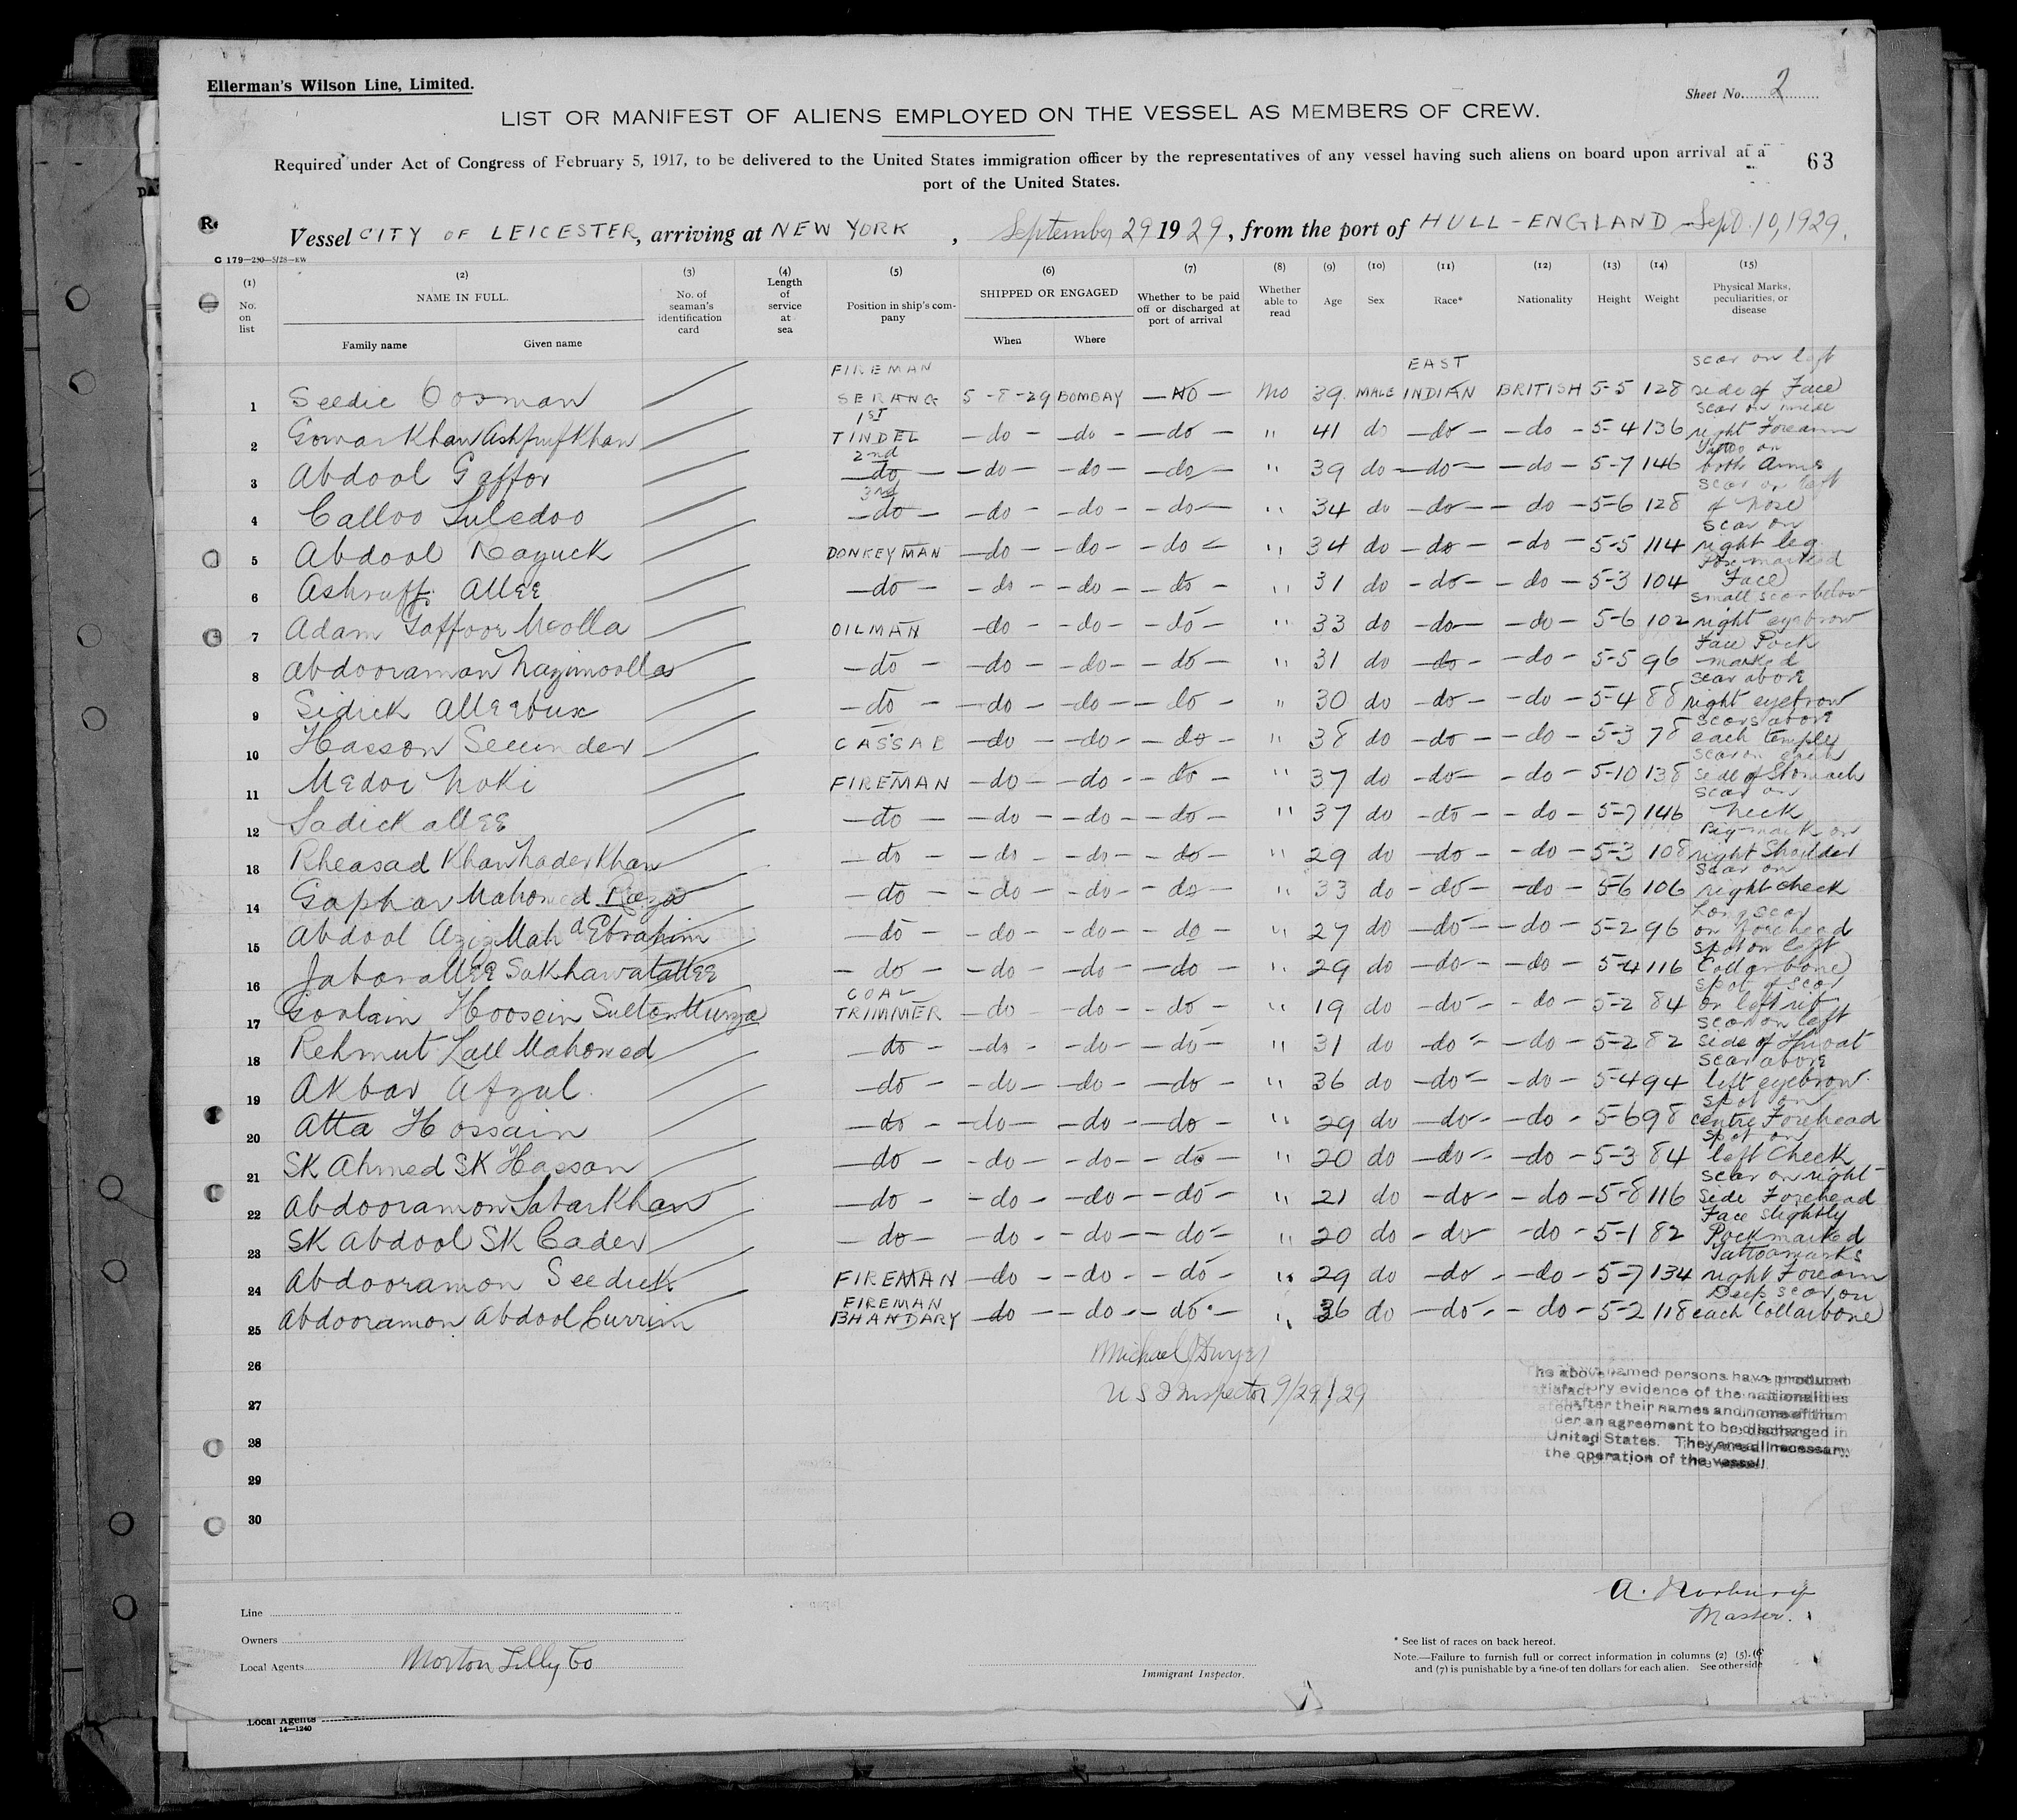 Ellerman's Wilson Line, Limited.
Sheet No. 2
LIST OR MANIFEST OF ALIENS EMPLOYED ON THE VESSEL AS MEMBERS OF CREW.
Required under Act of Congress of February 5, 1917, to be delivered to the United States immigration officer by the representatives of any vessel having such aliens on board upon arrival at a
port of the United States.
63
Vessel CITY OF LEICESTER, arriving at NEW YORK, September 29 1929, from the port of HULL - ENGLAND Sept. 10, 1929.
C 179—250—5/28—RW
(1) No. on list (2) NAME IN FULL. Family name Given name (3) No. of seaman's identification card (4) Length of service at sea (5) Position in ship's company (6) SHIPPED OR ENGAGED When Where (7) Whether to be paid off or discharged at port of arrival (8) Whether able to read (9) Age (10) Sex (11) Race* (12) Nationality (13) Height (14) Weight (15) Physical Marks, peculiarities, or disease
1 Seedic Oosman FIREMAN SERANG 5-8-29 BOMBAY — NO — No 39 MALE EAST INDIAN BRITISH 5-5 128 scar on left side of Face
2 Gowar Khan Ashruf Khan 1ST TINDEL — do — — do — — do — " 41 do — do — — do — 5-4 136 right Forearm
3 Abdool Gaffor 2nd — do — — do — — do — — do — " 39 do — do — — do — 5-7 146 Tattoo on both Arms
4 Calloo Luledoo 3rd — do — — do — — do — — do — " 34 do — do — — do — 5-6 128 scar on left of Nose
5 Abdool Razuck DONKEYMAN — do — — do — — do — " 34 do — do — — do — 5-5 114 scar on right leg
6 Ashruff Allee — do — — do — — do — — do — " 31 do — do — — do — 5-3 104 Pox-marked Face
7 Adam Gaffoor Moolla OILMAN — do — — do — — do — " 33 do — do — — do — 5-6 102 small scar below right eyebrow
8 Abdooraman Nazimoolla — do — — do — — do — — do — " 31 do — do — — do — 5-5 96 Face Pock marked
9 Sidick Alleebux — do — — do — — do — — do — " 30 do — do — — do — 5-4 88 scar above right eyebrow
10 Hasson Secunder CASSAB — do — — do — — do — " 38 do — do — — do — 5-3 78 scars above each temple
11 Medoe Noki FIREMAN — do — — do — — do — " 37 do — do — — do — 5-10 138 scar on each side of Stomach
12 Sadick Allee — do — — do — — do — — do — " 37 do — do — — do — 5-7 146 scar on Neck
13 Rheasad Khan Nader Khan — do — — do — — do — — do — " 29 do — do — — do — 5-3 108 right Shoulder
14 Gaphar Mahomed Raza — do — — do — — do — — do — " 33 do — do — — do — 5-6 106 scar on right cheek
15 Abdool Aziz Mahd Ebrahim — do — — do — — do — — do — " 27 do — do — — do — 5-2 96 Long scar on Forehead
16 Jaborallee Sakhawatallee — do — — do — — do — — do — " 29 do — do — — do — 5-4 116 spot on left Collarbone
17 Goolain Hoosein Sulton Murza COAL TRIMMER — do — — do — — do — " 19 do — do — — do — 5-2 84 spot of scar on left rib
18 Rehmut Lall Mahomed — do — — do — — do — — do — " 31 do — do — — do — 5-2 82 scar on left side of Throat
19 Akbar Afzul — do — — do — — do — — do — " 36 do — do — — do — 5-4 94 scar above left eyebrow
20 Atta Hossain — do — — do — — do — — do — " 29 do — do — — do — 5-6 98 spot on centre Forehead
21 SK Ahmed SK Hasson — do — — do — — do — — do — " 20 do — do — — do — 5-3 84 spot on left Cheek
22 Abdooramon Satar Khan — do — — do — — do — — do — " 21 do — do — — do — 5-8 116 scar on right side Forehead
23 SK Abdool SK Cader — do — — do — — do — — do — " 20 do — do — — do — 5-1 82 Face slightly Pockmarked
24 Abdooramon Seedick FIREMAN — do — — do — — do — " 29 do — do — — do — 5-7 134 Tattoo marks right Forearm
25 Abdooramon Abdool Currim FIREMAN BHANDARY — do — — do — — do — " 36 do — do — — do — 5-2 118 Deep scar on each Collarbone
26
27
28
29
30
Michael Dwyer
U S I Inspector 9/29/29
The above named persons have produced
satisfactory evidence of the nationalities
after their names and none of them
der an agreement to be discharged in
United States. They are all necessary
the operation of the vessel
A. Norbury
Master.
Line
Owners
Local Agents Morton Lilly Co
Immigrant Inspector.
* See list of races on back hereof.
Note.—Failure to furnish full or correct information in columns (2) (5), (6
and (7) is punishable by a fine of ten dollars for each alien. See otherside
Local Agents
14—1240